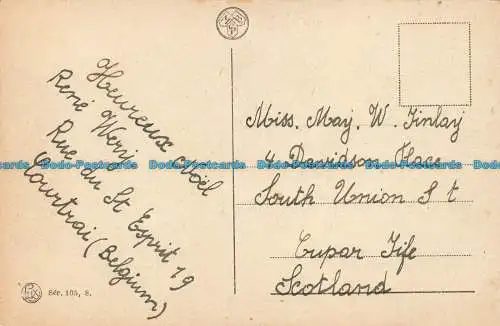 Heureux Noël
René Weris
Rue du St Esprit 19
Courtrai (Belgium)
Sér. 105, 8.
Miss. May. W. Finlay
4 Davidson Place
South Union St
Cupar Fife
Scotland
Dodo-Postcards Dodo-Postcards Dodo-Postcards Dodo-Postcards